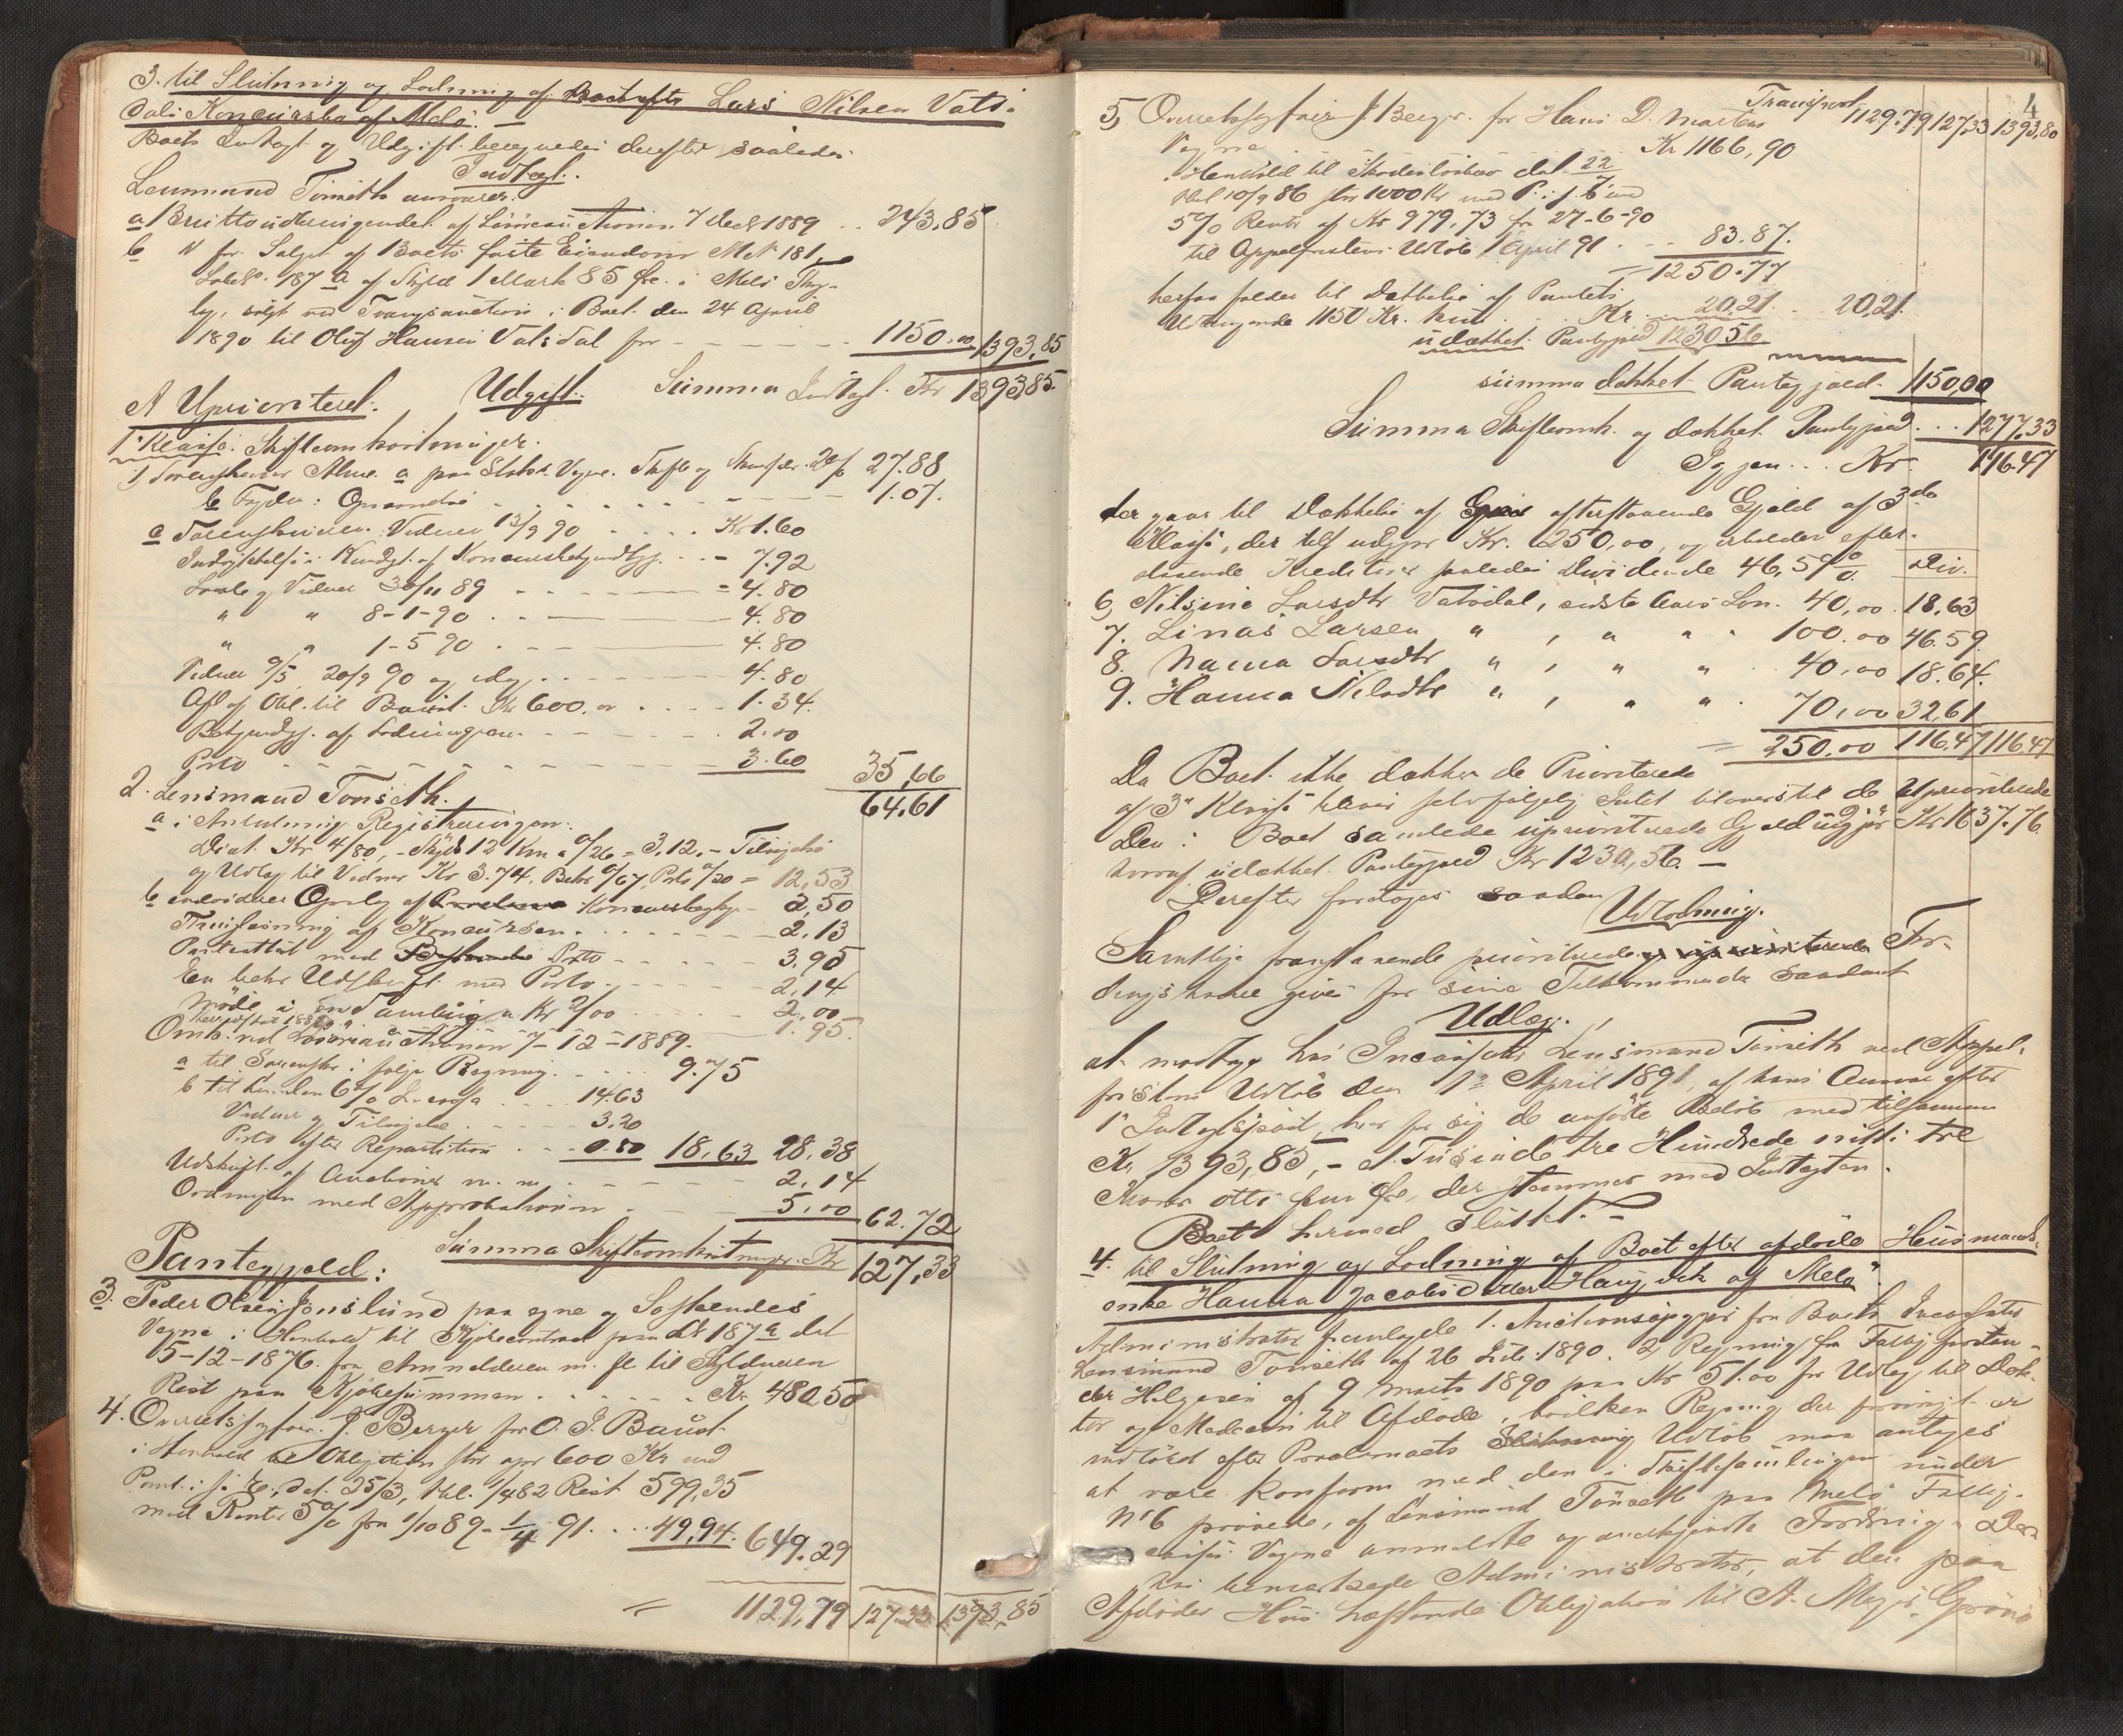 3. til Slutning og Lodning af Boet efter Lars Nilsen Vats-
dals Koncursbo af Melø.
Boets Indtægt og Udgift beregnedes derefter saaledes
Indtægt.
Lensmand Tønseth ansvarer:
a Brutto udbringendet af Løsøreauctionen 7 Decb 1889 .. 243,85
b " for Salget af Boets faste Eiendom M.N. 181,
Løbeno. 187 a af Skyld 1 Mark 85 Øre i Melø Thg-
lg, solgt ved Tvangsauction i Boet den 24 April
1890 til Oluf Hansen Vatsdal for - - - - - 1150.00 1393,85
Udgift. Summa Indtægt. Kr 1393,85.
A Uprioriteret.
1ste Klasse. Skifteomkostninger.
1) Sorenskriver Alme. a paa Statsk. Vegne. Skifte og 27.88
b Sagfører: Opsendse - - - - 1.07.
c Sorenskriveren. Vidner 13/9 90 . . . . Kr 1.60
Indrykkelse i Kundgj. af Koncursbekjendtgj. . . - 7.92
Lokale og Vidner 30/11 89 - - - - = 4.80
" " 8-1-90 . . - 4.80
" " 1-5 90 . - - 4.80
Vidner 9/5, 20/9 90 og idag . - - - 4.80
Afl af Obl. til Baust. Kr 600.00 . . . . 1.34.
Bekjendtgj. af Lodningen - - - - 2.00
Porto - - - - - - - 3.60 35,66
64.61
2. Lensmand Tønseth.
a i Anledning Registreringen:
Diæt. Kr 4/80, - Skyds 12 Km a 0/26 = 3.12. - Tilsigelse
og Udlæg til Vidner Kr 3.74. Bekr 0/67. Porto 0/20 = 12,53
b endvidere Opslag af Koncursbegj. - 2,50
Thinglæsning af Koncursen . . . . . . . 2.13
Pantattest med Porto - - - - 3.95
En bekr Udskrift med Porto . - - - - 2,14
Møde i en Samling a Kr 2/00 . . . . . 2.00
1.95.
Omk. ved Løsøreauctionen 7-12-1889.
a til Sorenskr. i følge Regning. . . . . 9.75
b til Lensmanden 6% Incasso . . . . 14.63
Vidner og Tilsigelse . . . . . 3.20
Porto efter Repartition . . . 0.80 18,63 28,38
Udskrift af Auctionen m. m. - - - - 2,14
Ordningen med Approbationen - - - 5.00 62.72
Summa Skifteomkostninger. Kr 127,33
Pantegjæld:
3. Peder Olsen Jenslund paa egne og Søskendes
Vegne i Henhold til Kjøbecontract paa LN 187 a dat
5-12-1876. fra Anmelderen m. fl. til Skyldneren
Rest paa Kjøbesummen . . . . . . . Kr. 480,50
4. Overretssagfører J. Berger for O. J. Baust
i Henhold til Obligation stor opr 600 Kr med
Pant i f. E., dat. 25/3, thl. 1/4 82 Rest 599,35
med Renter 5% fra 1/10 89 - 1/4 91. . . . 49,94. 649.29
= 1129,79 127,33 1393,85
4
Transport 1129,79 127,33 1393,80
5, Overretssagfører J. Berger. for Hans D. Martens
Vegne Kr 1166,90
i Henhold til Skadesløsbrev dat. 22/7
thl 10/9 86 stor 1000 Kr med P. i f. E. med
5% Rente af Kr 979,73 fra 27-6-90
til Appelfristens Udløb 1 April 91 . - - 83.87.
= 1250.77
herfra falder til Dækkelse af Pantets
Udbringende 1150 Kr. kun . . . Kr. 20,21. . . 20,21
udækket Pantegjæld 1230 56
summa dækket Pantegjæld. 1150,00
Summa Skifteomk. og dækket Pantegjæld . . . 1277,33
Igjen . . . Kr. 116.47
der gaar til Dækkelse af efterstaaende Gjæld af 3die
Klasse, der ialt udgjør Kr. 250,00, og erholder efter-
staaende Kreditorer saaledes Dividende 46,5% Div.
6, Nilsine Larsdtr Vatsdal, sidste Aars Løn. 40,00. 18,63
7. Linas Larsen " , " " . 100.00 46.59.
8. Nanna Larsdtr " , " " . 40,00 18.64.
9. Hanna Nilsdtr " , " " . 70,00 32,61
= 250.00 116.47 116.47
Da Boet ikke dækker de Prioriterede
af 3die Klasse bliver selvfølgelig Intet tilovers til de Uprioriterede
Den i Boet samlede uprioriterede Gjæld udgjør Kr 1637.76.
hvoraf udækket Pantegjæld Kr 1230,56. -
Derefter foretoges saadan
Udlodning.
Samtlige foranstaaende prioriterede For-
dringshavere gives for sine Tilkommende saadant
Udlæg:
at modtage hos Incassator Lensmand Tønseth ved Appel-
fristens Udløb den 1ste April 1891, af hans Ansvar efter
1ste Indtægtspost, hver for sig de anførte Beløb med tilsammen
Kr. 1393,85, - Et Tusinde tre Hundrede nitti tre
Kroner otti fem Øre, der stemmer med Indtægten.
Boet hermed sluttet. -
4. til Slutning og Lodning af Boet efter afdøde Husmands-
enke Hanna Jacobsdatter Haugvik af Melø.
Administrator fremlagde 1. Auctionsopgjør fra Boets Incassator
Lensmand Tønseth af 26 Feb. 1890. 2 Regning fra Fattigforstan-
der Helgesen af 9 Marts 1890 paa Kr 51.00 for Udlæg til Dok-
tor og Medecin til Afdøde, hvilken Regning der forøvrigt er
indløbet efter Proclamaets Udløb maa antages
at være konform med den i Skiftesamlingen under
No 6 prøvede, af Lensmand Tønseth paa Melø Fattig-
Vegne anmeldte og anerkjendte Fordring. Der-
hos bemærkede Administrator, at den paa
Afdødes Hus hæftende Obligation til A. Meyer, Grønø